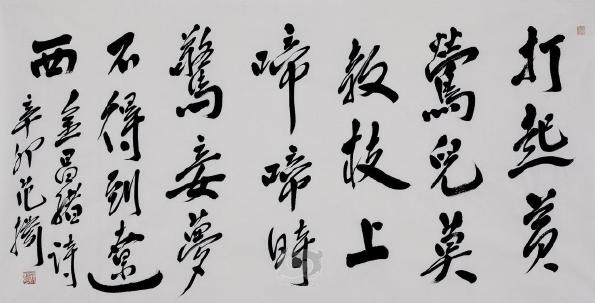 打起黄
鶯兒莫
教枝上
啼啼時
驚妾夢
不得到遼
西
金昌緒詩
辛卯范